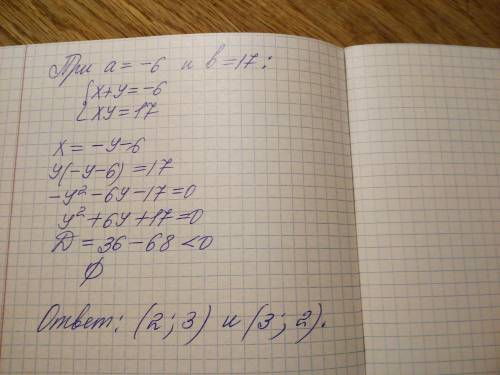 При a = -6 и b = 17:
{x+y = -6
{xy = 17
x = -y-6
y(-y-6) = 17
-y² - 6y - 17 = 0
y² + 6y + 17 = 0
D = 36 - 68 < 0
∅
Ответ: (2; 3) и (3; 2).